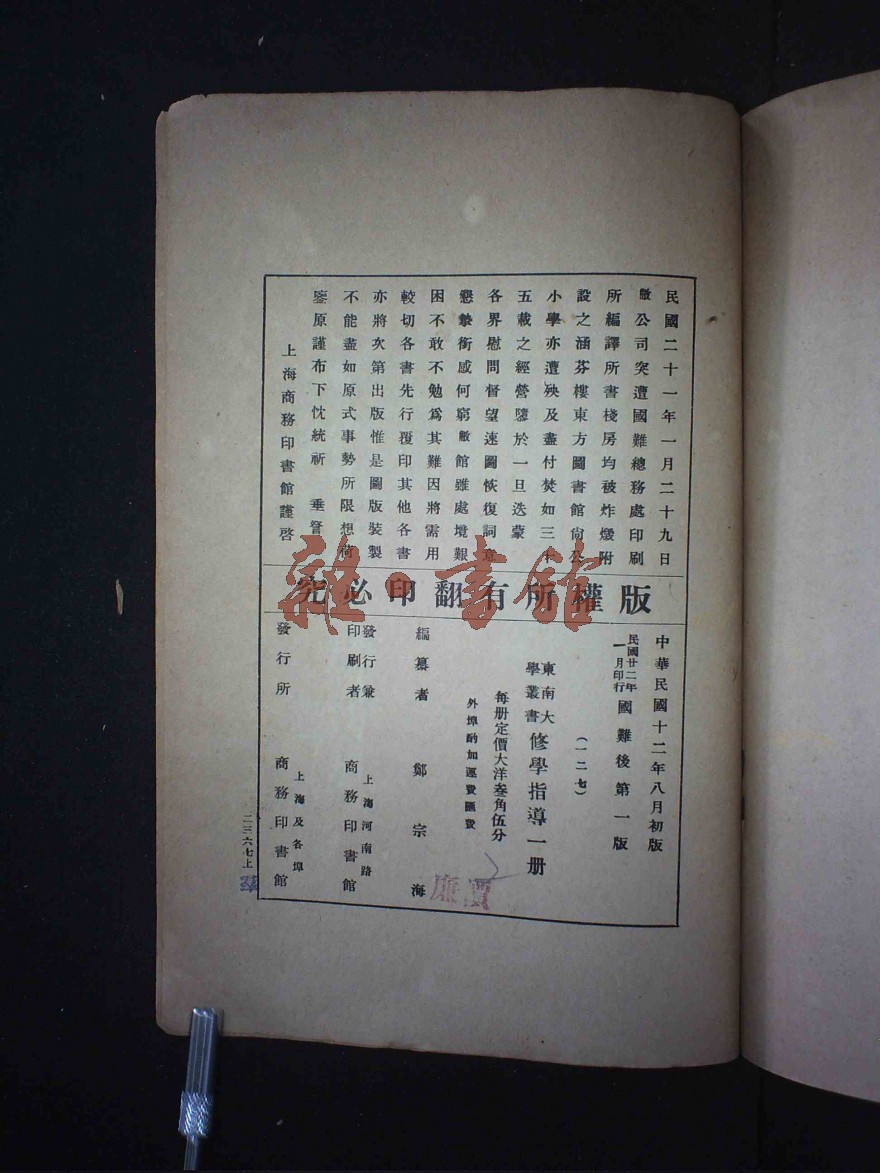 民國二十一年一月二十九日
敝公司突遭國難總務處印刷
所編譯所書棧房均被炸燬附
設之涵芬樓東方圖書館尙公
小學亦遭殃及盡付焚如三十
五載之經營隳於一旦迭蒙
各界慰問督望速圖恢復詞意
懇摯銜感何窮敝館雖處境艱
困不敢不勉爲其難因將需用
較切各書先行覆印其他各書
亦將次第出版惟是圖版裝製
不能盡如原式事勢所限想荷
鑒原謹布下忱統祈 垂詧
上海商務印書館謹啓
版權所有翻印必究
中華民國十二年八月初版
民國廿二年一月印行 國難後第一版
(一二七)
東南大學叢書 修學指導一册
每册定價大洋叁角伍分
外埠酌加運費匯費
編纂者 鄭宗海
發行兼印刷者 上海河南路 商務印書館
發行所 上海及各埠 商務印書館
二三六七上
雜·書館